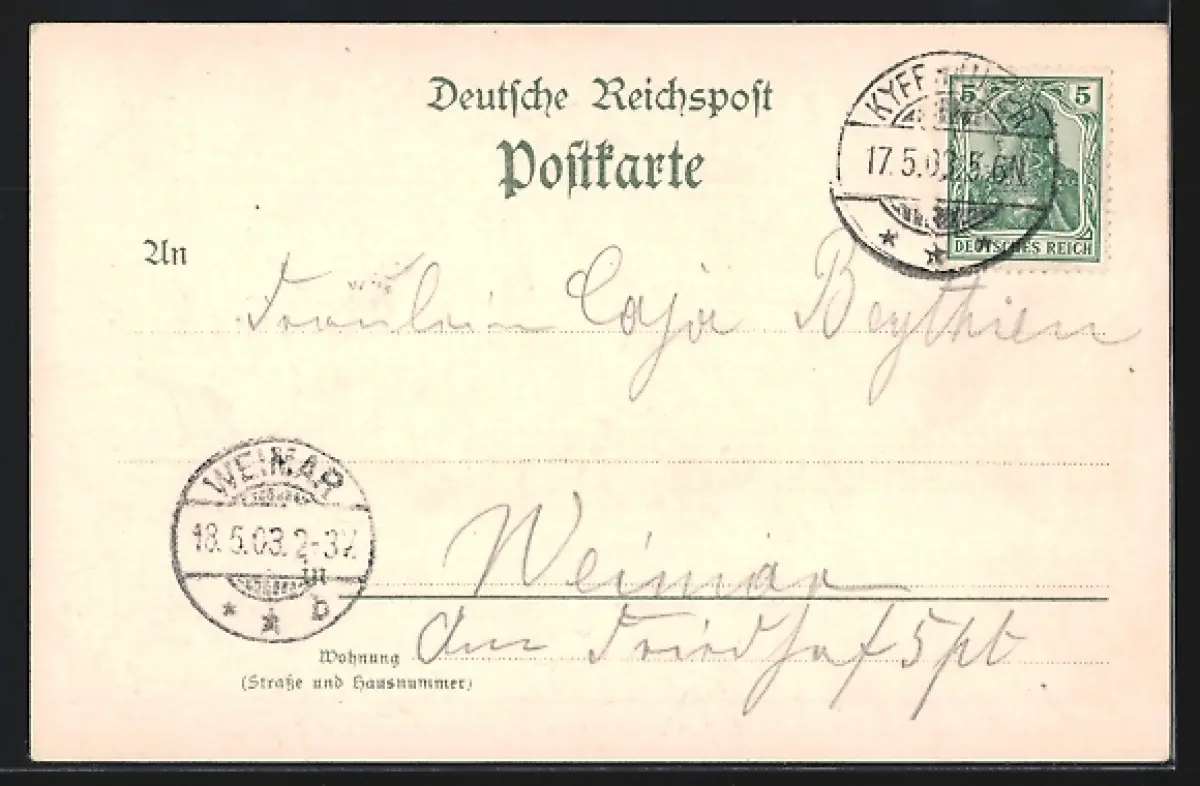 Deutsche Reichspost
Postkarte
KYFFHÄUSER
17.5.03. 5-6N.
5 5
DEUTSCHES REICH
An
Fräulein Caja Beythien
WEIMAR
18.5.03. 2-3N.
* * b
in
Weimar
Wohnung Am Friedhof 5 pt
(Straße und Hausnummer)